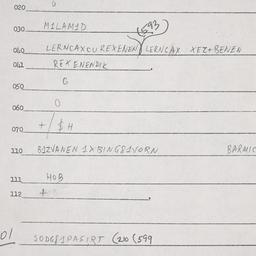 020
030 M1LAM1D
(593
040 LERNCAXCUREXENEN) LERNCAX XEZ+BENEN
041 REXENENDIK
050 G
060 O
070 +/$H
110 B1ZVANEN 1XBINGS1VORN BARMIC
111 HOB
112 +
01 SODG81PASIRT (20 (599